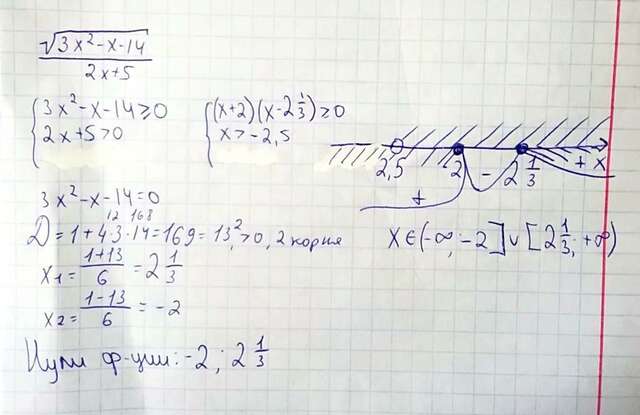 √3x²-x-14
2x+5
{3x²-x-14≥0
2x+5>0
{(x+2)(x-2 1/3)≥0
x>-2,5
2,5 2 - 2 1/3 + x
+
3x²-x-14=0
12 168
D=1+4·3·14=169=13²>0, 2 корня
x₁= 1+13/6 =2 1/3
x₂= 1-13/6 =-2
x∈(-∞;-2]∪[2 1/3;+∞)
Нули ф-ции: -2; 2 1/3